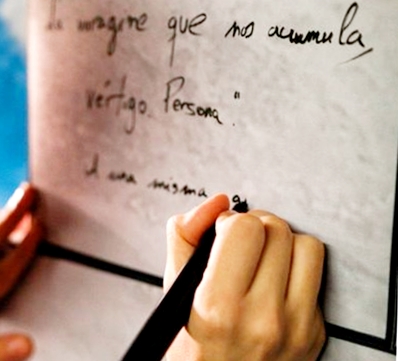 la imagine que nos acumula,
vértigo. Persona".
A una misma a